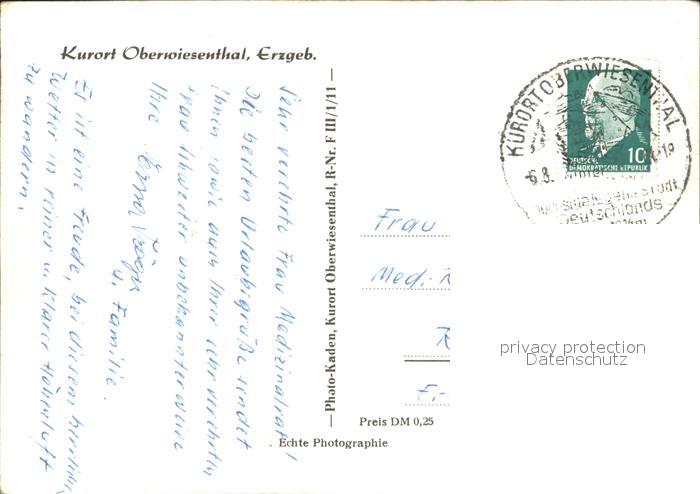 Kurort Oberwiesenthal, Erzgeb.
Sehr verehrte Frau Medizinalrat!
Die besten Urlaubsgrüße sendet
Ihnen sowie auch Ihrer sehr verehrten
Frau Schwester unbekannterweise
Ihre Erna
u. Familie.
Es ist eine Freude, bei diesem herrlichen
Wetter in reiner u. klarer Höhenluft
zu wandern.
—Photo-Kaden, Kurort Oberwiesenthal, R-Nr. F III/1/11—
KURORT OBERWIESENTHAL
6.8.
DEUTSCHE
DEMOKRATISCHE REPUBLIK
10
Frau
Med.-R
R
E.-
privacy protection
Datenschutz
Preis DM 0,25
Echte Photographie